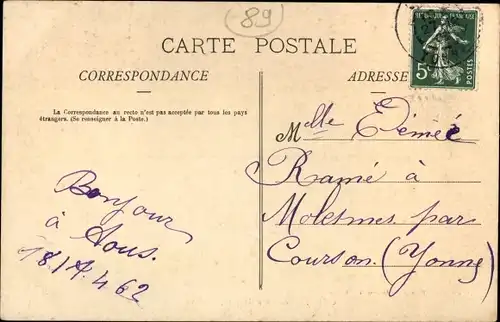 89
CARTE POSTALE
CORRESPONDANCE
ADRESSE
La Correspondance au recto n'est pas acceptée par tous les pays
étrangers. (Se renseigner à la Poste.)
5c
POSTES
Mlle
Ramé à
Molesmes par
Courson (Yonne)
Bonjour
à tous.